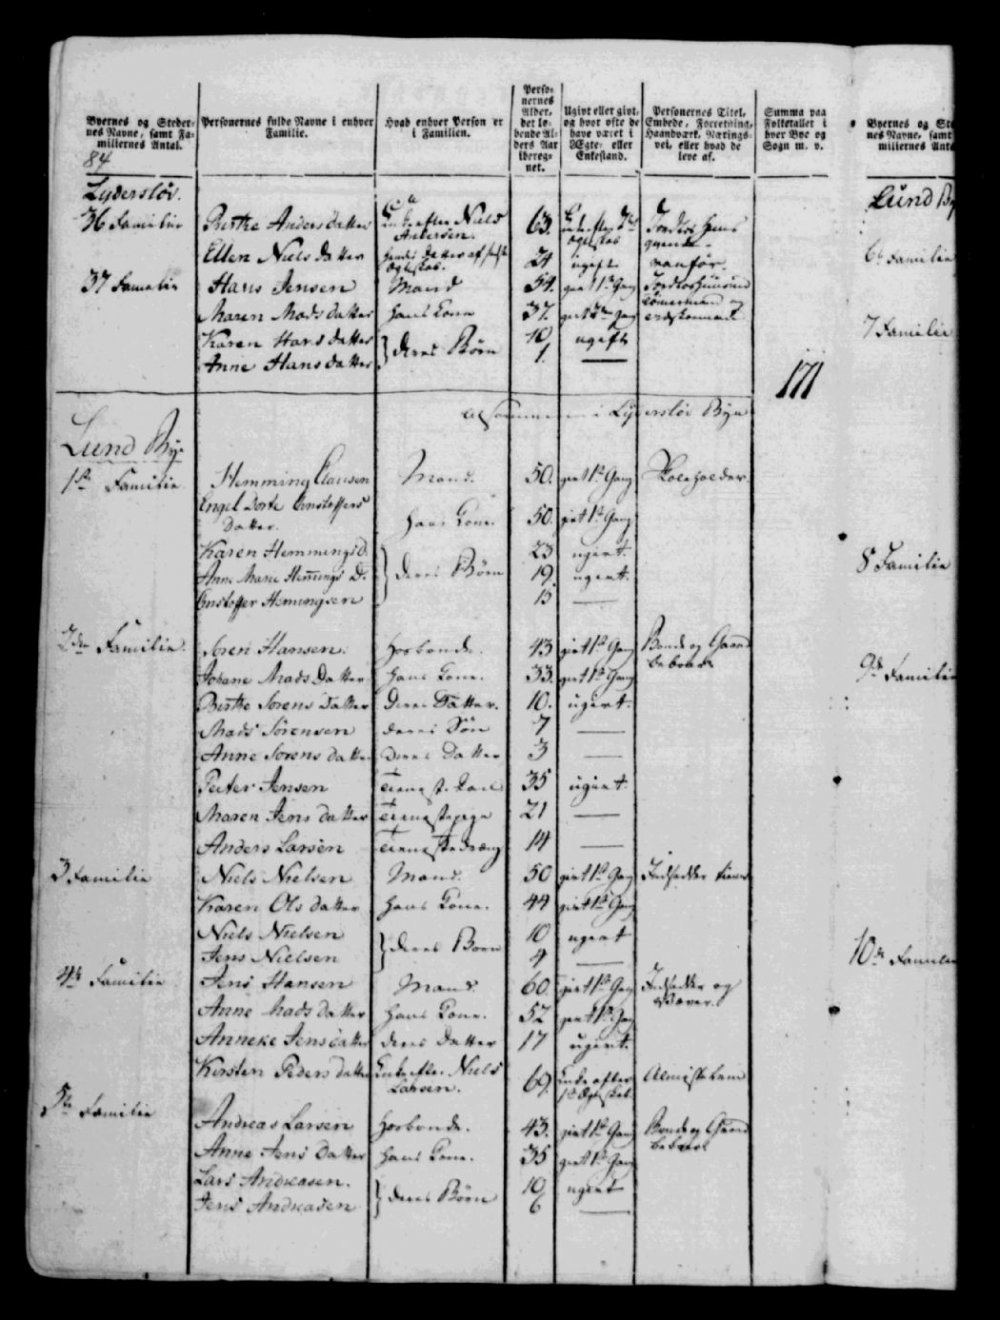 Byernes og Steder-
nes Navne, samt Fa-
miliernes Antal.
Personernes fulde Navne i enhver
Familie.
Hvad enhver Person er
i Familien.
Perso-
nernes
Alder,
det lø-
bende Al-
ders Aar
ibereg-
net.
Ugivt eller givt,
og hvor ofte de
have været i
Ægte- eller
Enkestand.
Personernes Titel,
Embede, Forretning,
Haandværk, Nærings-
vei, eller hvad de
leve af.
Summa paa
Folketallet i
hver Bye og
Sogn m. v.
84
Lydersløv.
36 Familie Birthe Anders datter Enke efter Niels Andersen. 63.
Ellen Niels datter 24 ugift vanför.
37 Familie Hans Jensen Mand 54. givt 1ste Gang
Maren Mads datter hans Kone 37. givt 2den Gang
Karen Hans datter } deres Børn 10 ugift
Anne Hans datter 1. —
171
Lydersløv Bye
Lund Bye
1ste Familie Hemming Clausen Mand. 50. givt 1ste Gang
Engel Dorte Cristoffers
datter. hans Kone. 50. givt 1ste Gang
Karen Hemmings D. 23 ugivt.
Anne Marie Hemings D. } deres Børn 19. ugivt.
Cristoffer Hemingsen 15 —
2den Familie. Søren Hansen. Hosbonde. 43 givt 1ste Gang Bonde og Gaard
beboer
Johane Mads Datter hans Kone. 33. givt 1ste Gang
Birthe Sørens Datter deres Datter. 10. ugivt.
Mads Sørensen deres Søn 7 —
Anne Sørens datter deres Datter 3 —
Peter Jensen Tieneste Karl 35 ugivt.
Maren Jens datter Tienestepige 21 —
Anders Larsen Tienestedreng 14 —
3 Familie Niels Nielsen Mand. 50 givt 1ste Gang
Karen Ols datter hans Kone. 44 givt 1ste Gang
Niels Nielsen } deres Børn 10 ugivt
Jens Nielsen 4 —
4de Familie Jens Hansen Mand. 60. givt 1ste Gang Indsidder og
Væver.
Anne Mads datter hans Kone. 52 givt 1ste Gang
Anneke Jens datter deres Datter 17 ugivt.
Kirsten Peders datter Enke efter Niels
Larsen. 69. Enke efter
1ste Ægteskab Almisselem
5te Familie
Andreas Larsen Hosbonde. 43. givt 1ste Gang Bonde og Gaard
beboer
Anne Jens Datter hans Kone. 35 givt 1ste Gang
Lars Andreasen. } deres Børn 10 ugivt
Jens Andreasen 6 —
Byernes og
nes Navne, samt
miliernes
Lund
6te Familie
7 Familie
8 Familie
9de Familie
10de Familie